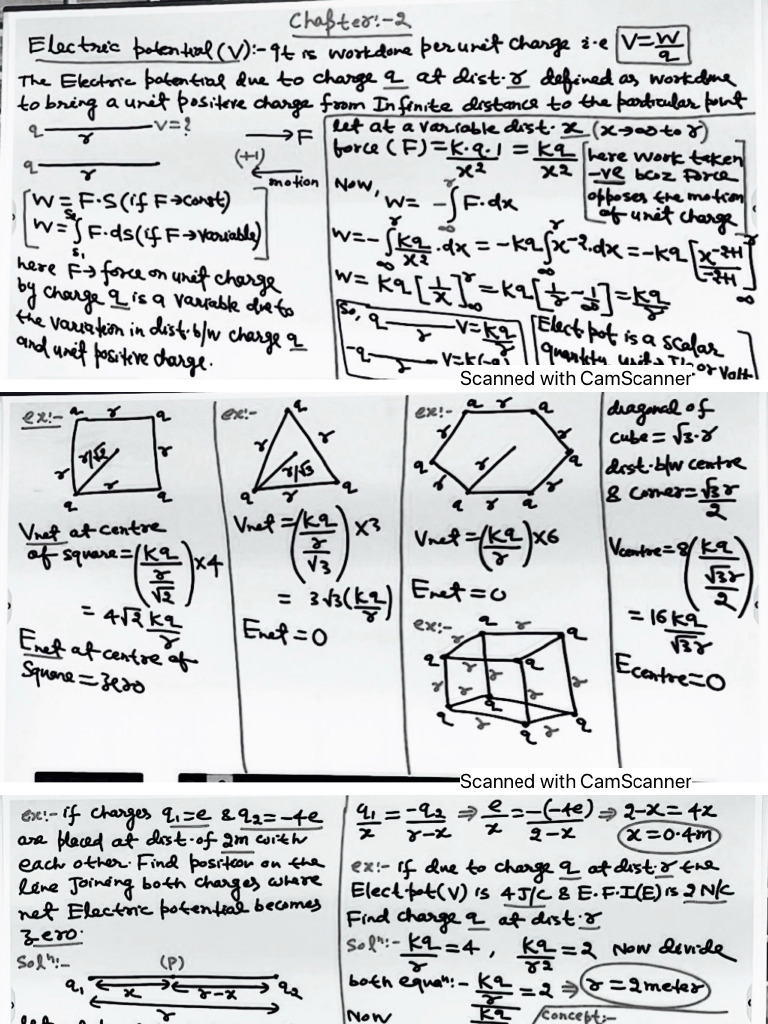 Chapter:-2
Electric potential (V):- It is workdone per unit charge i.e V=W/q
The Electric potential due to charge q at dist. r defined as workdone
to bring a unit positive charge from Infinite distance to the particular point
q r V=?
→F
q r (+1) motion
[W = F·S (if F→const)
W = ∫ F·ds (if F→variable)]
s2
s1
here F→force on unit charge
by charge q is a variable due to
the variation in dist. b/w charge q
and unit positive charge.
let at a variable dist. x (x→∞ to r)
force (F) = K·q·1/x² = Kq/x²
[here work taken
-ve bcoz Force
opposes the motion
of unit charge]
Now, W = -∫∞^r F·dx
W = -∫∞^r Kq/x² ·dx = -Kq∫∞^r x⁻²·dx = -Kq[x^-2+1/-2+1]∞^r
W = Kq[1/x]∞^r = Kq[1/r - 1/∞] = Kq/r
So, q r V=Kq/r
-q r V=K(-q)
[Elect pot is a scalar
quantity or Volt]
Scanned with CamScanner
ex:-
q r q
r r/√2 r
q r q
Vnet at centre
of square = (Kq/(r/√2)) ×4
= 4√2 Kq/r
Enet at centre of
Square = zero
ex:-
q
r r
r/√3
q r q
Vnet = (Kq/(r/√3)) ×3
= 3√3 (Kq/r)
Enet = 0
ex:-
q r q
r r
q r q
r r
q r q
Vnet = (Kq/r) ×6
Enet = 0
ex:-
q r q
r r
q r q
r r r r
r q r
q r q
r q r
diagonal of
cube = √3·r
dist. b/w centre
& corner = √3r/2
Vcentre = 8(Kq/(√3r/2))
= 16Kq/√3r
Ecentre = 0
Scanned with CamScanner
ex:- if charges q1=e & q2=-4e
are placed at dist. of 2m with
each other. Find position on the
line Joining both charges where
net Electric potential becomes
zero.
Solⁿ:- (P)
q1 x r-x q2
r
q1/x = -q2/r-x ⇒ e/x = -(-4e)/2-x ⇒ 2-x = 4x
x = 0.4m
ex:- if due to charge q at dist. r the
Elect pot (V) is 4 J/C & E.F.I (E) is 2 N/C
Find charge q at dist. r
Solⁿ:- Kq/r = 4, Kq/r² = 2 Now divide
both equaⁿ:- Kq/r / Kq = 2 ⇒ r = 2meter
Now
Concept:-